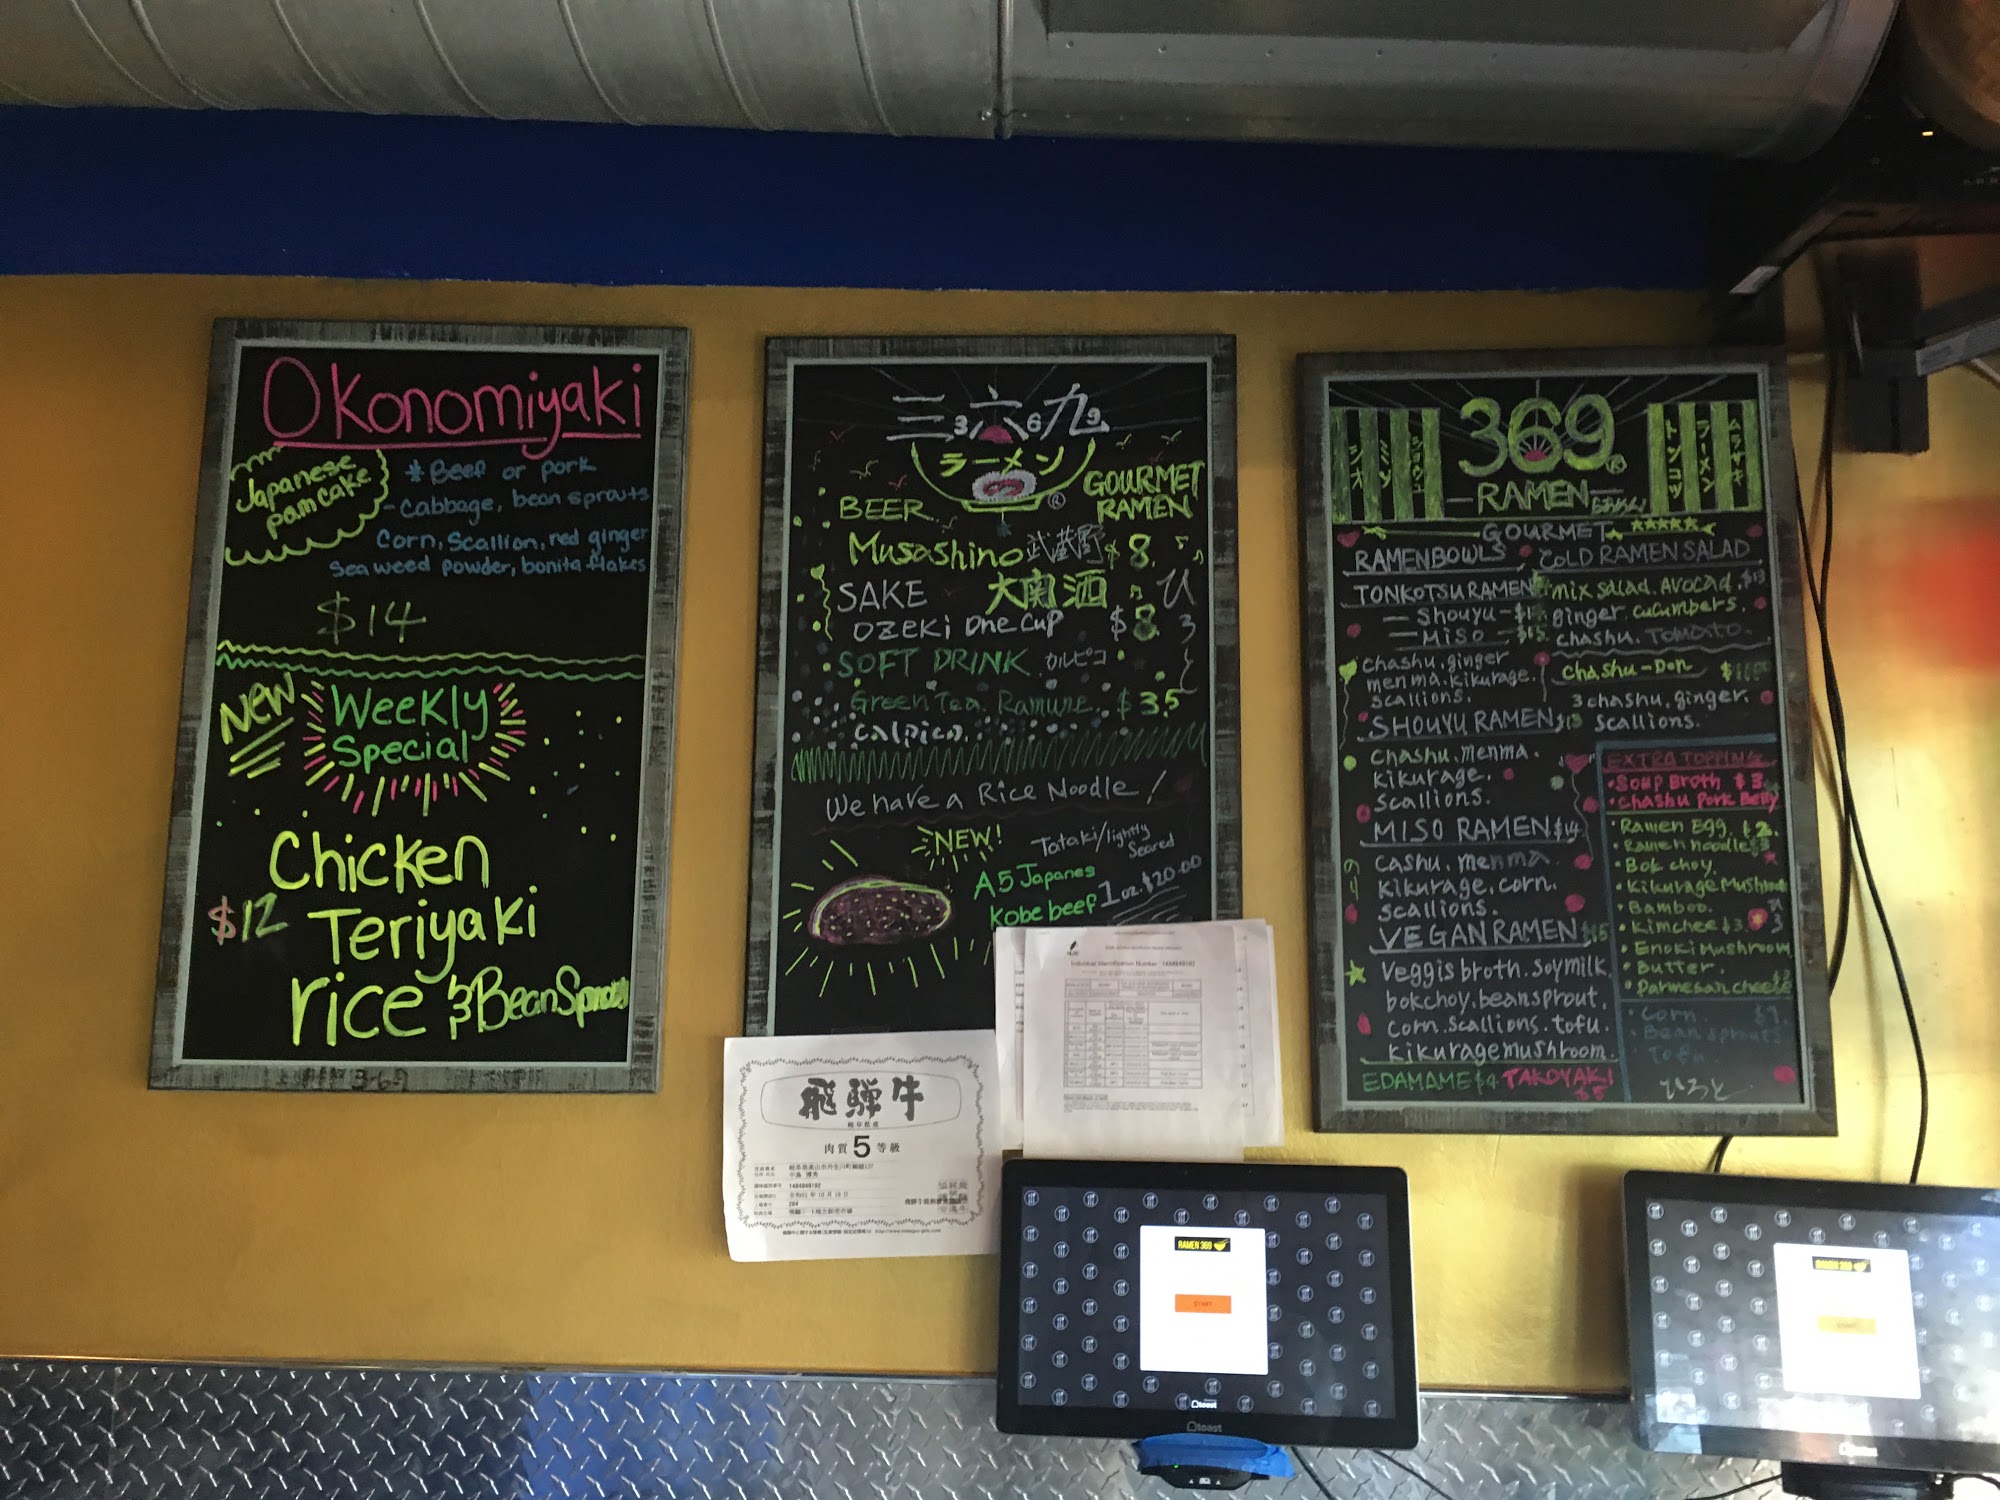 Okonomiyaki
Japanese
pamcake
* Beef or pork
- Cabbage, bean sprouts
Corn, Scallion, red ginger
Seaweed powder, bonita flakes
$14
NEW
Weekly
Special
Chicken
$12 Teriyaki
rice & Bean Sprouts
369
三3六6九9
ラーメン
®
GOURMET
RAMEN
BEER
Musashino 武蔵野 $8.
SAKE
ozeki one cup $8.
SOFT DRINK カルピコ
Green Tea. Ramune. $3.5
Calpico.
ひろと
We have a Rice Noodle!
NEW!
Tataki/lightly
Seared
A5 Japanes
Kobe beef
1oz. $20.00
Individual Identification Number
飛騨牛
岐阜県産
肉質5等級
1484849192
369®
RAMEN
トンコツ
ラーメン
ムラサキ
GOURMET
RAMEN BOWLS
TONKOTSU RAMEN
- Shouyu -
- Miso -
Chashu, ginger
menma, kikurage.
scallions.
SHOUYU RAMEN
Chashu. menma.
kikurage.
scallions.
MISO RAMEN $14
Cashu. menma
kikurage, corn.
scallions.
VEGAN RAMEN $15
Veggis broth. soymilk.
bokchoy. beansprout.
corn. scallions. tofu.
kikurage mushroom.
EDAMAME $4 TAKOYAKI
$5
COLD RAMEN SALAD
mix salad. Avocad. $13
ginger. cucumbers.
chashu. TOMATO.
Chashu-Don
3 chashu, ginger.
scallions.
EXTRA TOPPING
• Soup Broth $3
• Chashu Pork Belly
• Ramen Egg. $2.
• Ramen noodle $3
• Bok choy.
• Kikurage Mushroom
• Bamboo.
• Kimchee $3.
• Enoki Mushroom
• Butter.
• Parmesan cheese
• Corn.
• Bean sprouts
• Tofu
ひろと
RAMEN 369
START
toast
toast
RAMEN 369
START